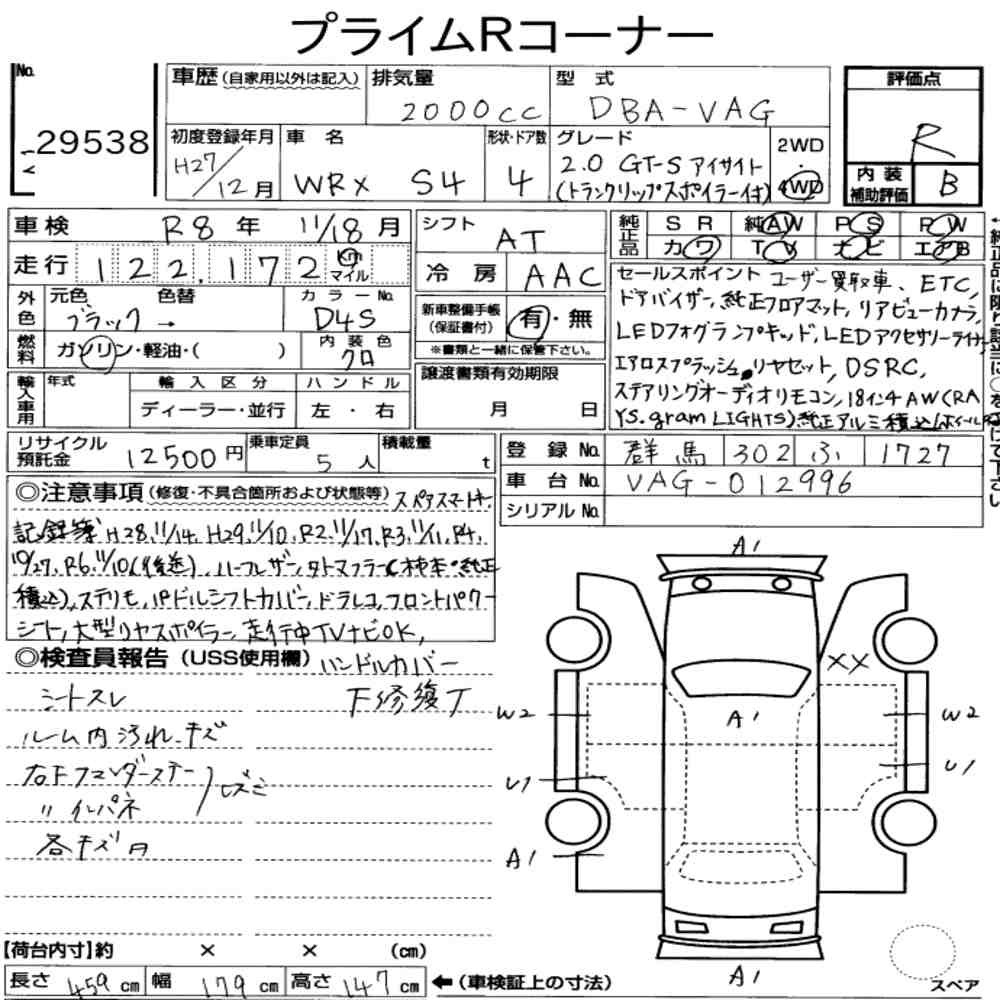 プライムRコーナー
No.
29538
車歴(自家用以外は記入)
排気量
2000cc
型式
DBA-VAG
評価点
R
初度登録年月
H27/12月
車名
WRX S4
形状・ドア数
4
グレード
2.0 GT-S アイサイト
(トランクリップスポイラー付)
2WD
・
4WD
内装
補助評価
B
車検 R8年 11/18月
走行 122,172 km
マイル
シフト AT
冷房 AAC
純正品
SR 純AW PS PW
カワ TV ナビ エアB
外色
元色 色替
ブラック→
カラーNo.
D4S
燃料
ガソリン・軽油・( )
内装色
クロ
新車整備手帳
(保証書付)
有・無
※書類と一緒に保管下さい。
セールスポイント ユーザー買取車、ETC,
ドアバイザー,純正フロアマット,リアビューカメラ,
LEDフォグランプキッド,LEDアクセサリーライナー
エアロスプラッシュ,リヤセット,DSRC,
ステアリングオーディオリモコン,18インチAW(RA
YS.gram LIGHTS)純正アルミ積込
輸入車用
年式
輸入区分
ディーラー・並行
ハンドル
左・右
譲渡書類有効期限
月 日
リサイクル
預託金
12500円
乗車定員
5人
積載量
t
登録No. 群馬 302 ふ 1727
車台No. VAG-012996
シリアルNo.
◎注意事項(修復・不具合箇所および状態等)スペアスマートキー,
記録簿H28.11/14,H29.11/10,R2.11/17,R3.11/11,R4.
10/27,R6.11/10(後送),ハーフレザー,タトマフラー(柿本・純正
積込),ステリモ,パドルシフトカバー,ドラレコ,フロントパワー
シート,大型リヤスポイラー,走行中TVナビOK,
◎検査員報告(USS使用欄)ハンドルカバー
シートスレ 下修復丁
ルーム内汚れ、キズ
右Fフェンダーステー
〃インパネ
各キズ
A1
XX
W2
A1
W2
U1
U1
A1
A1
【荷台内寸】約 × × (cm)
長さ 459cm 幅 179cm 高さ 147cm ←(車検証上の寸法)
スペア